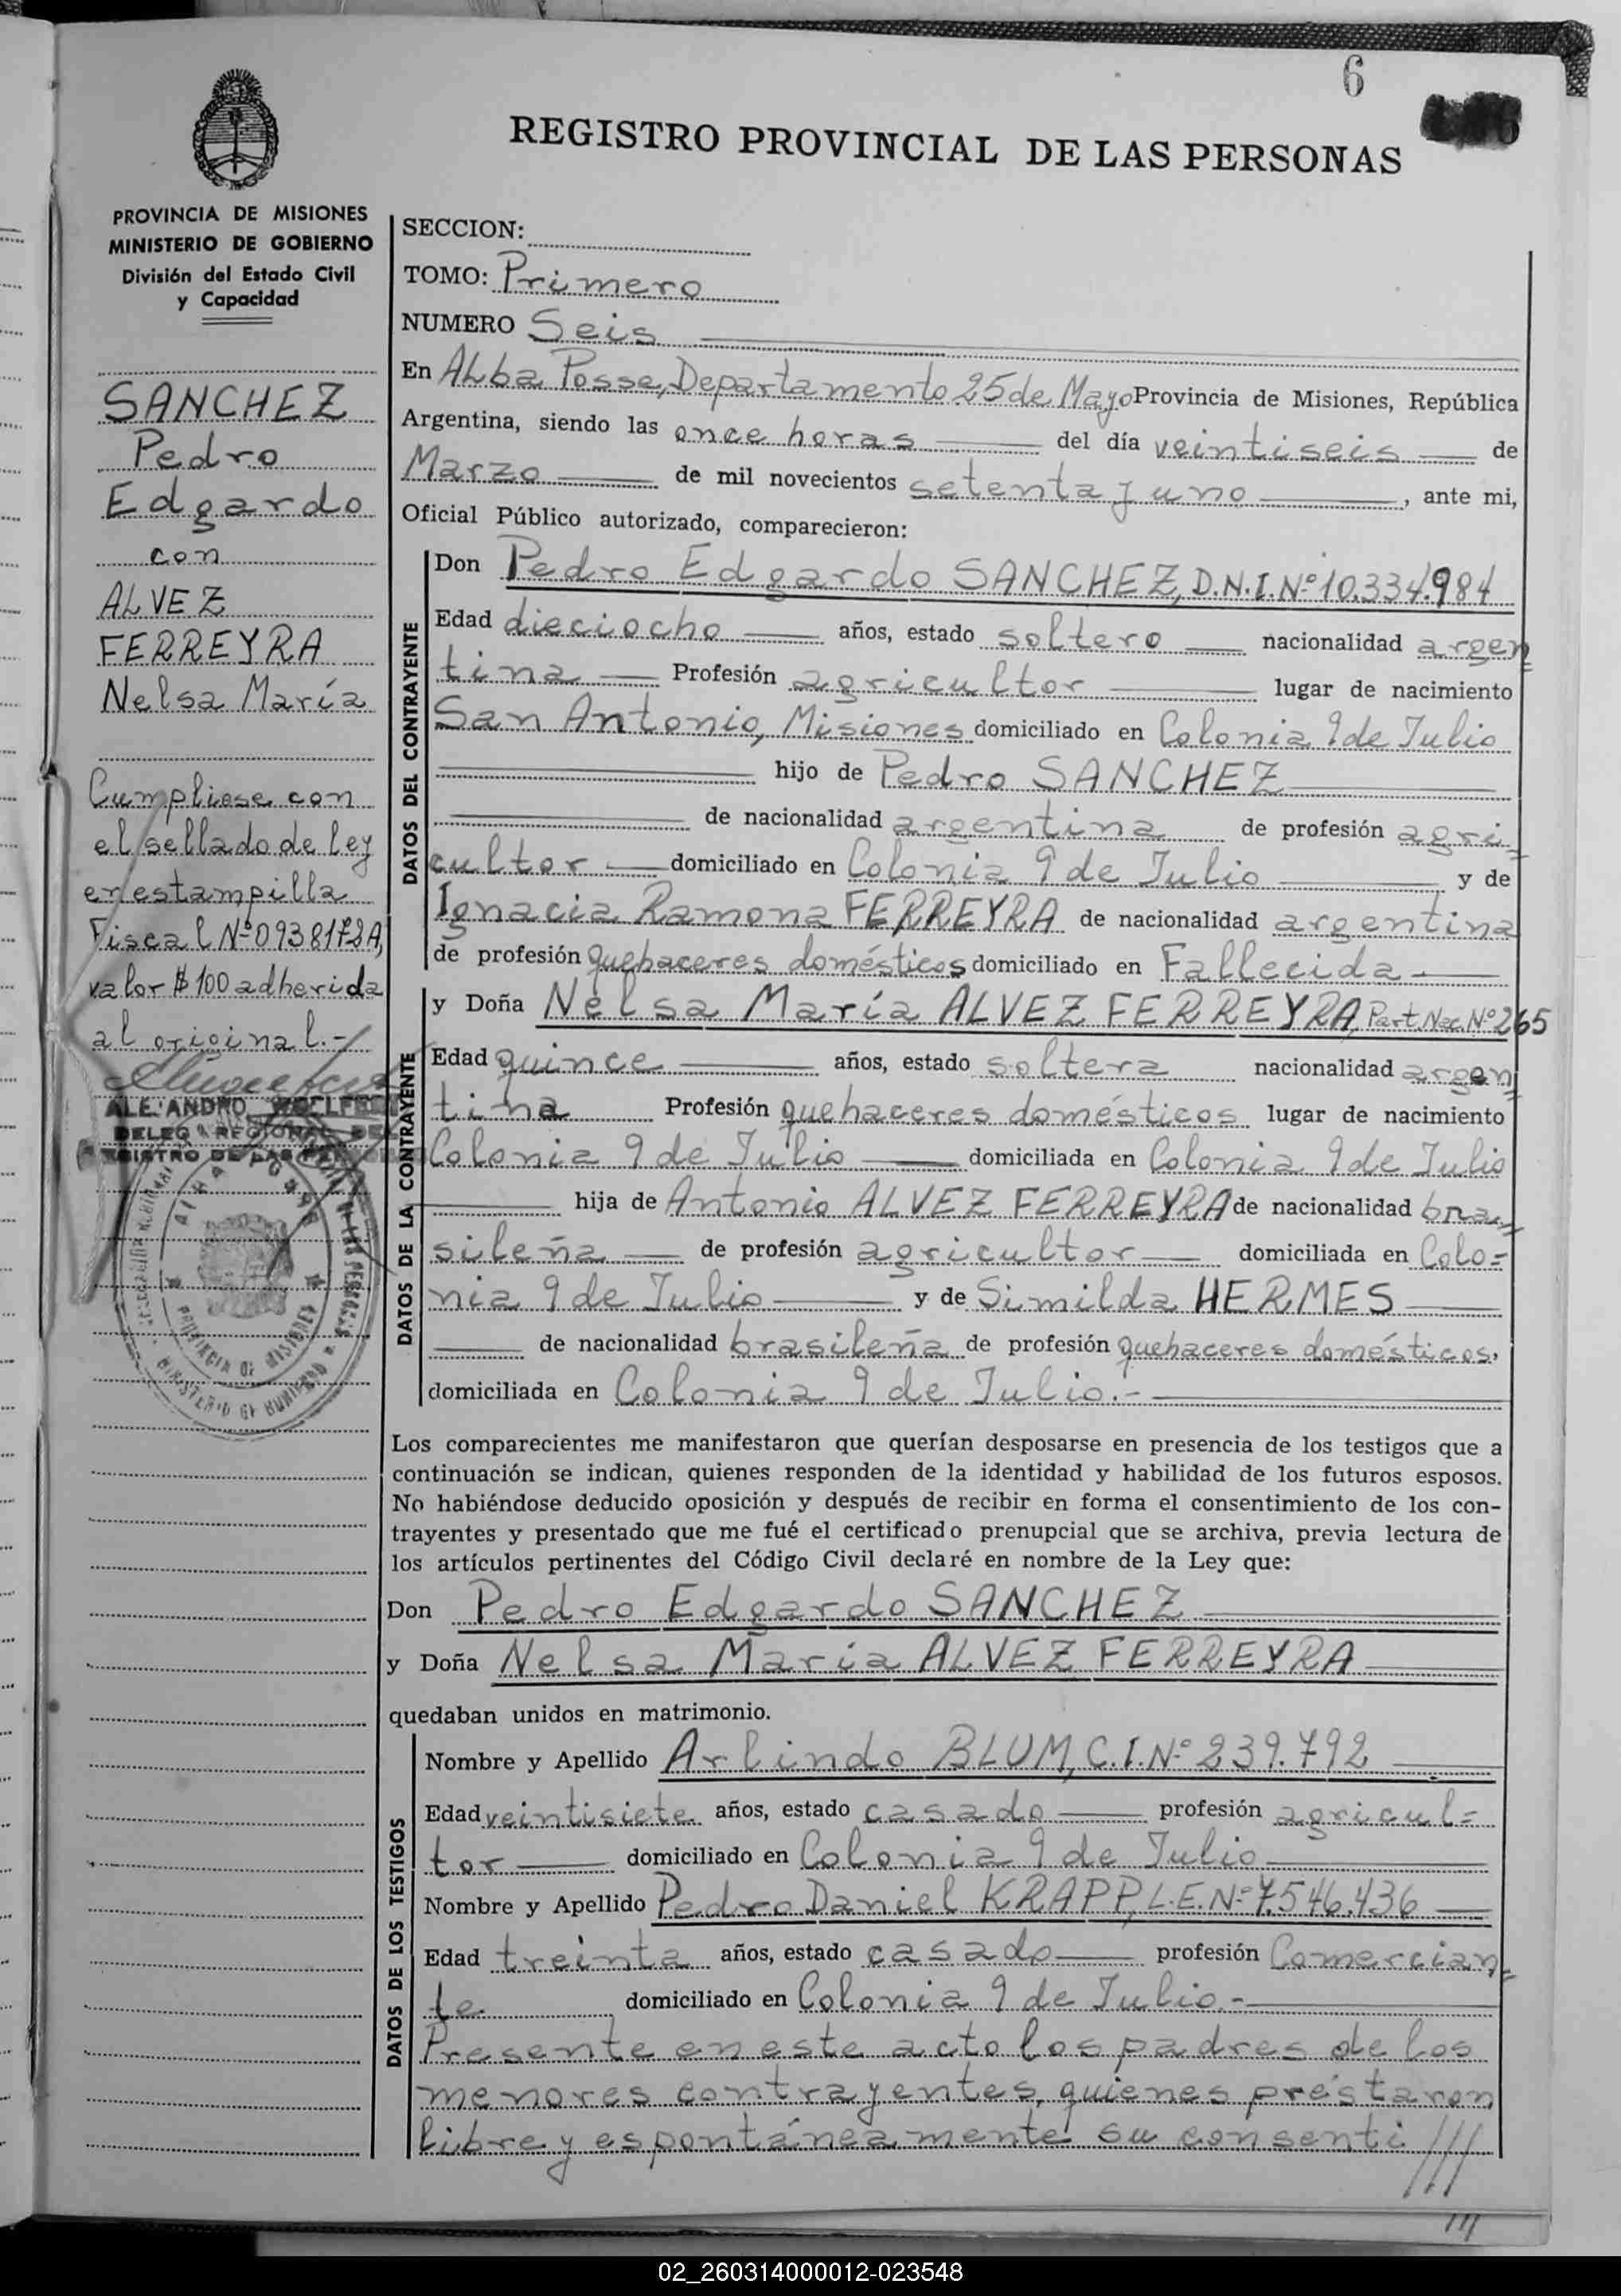 6
REGISTRO PROVINCIAL DE LAS PERSONAS
PROVINCIA DE MISIONES
MINISTERIO DE GOBIERNO
División del Estado Civil
y Capacidad
SANCHEZ
Pedro
Edgardo
con
ALVEZ
FERREYRA
Nelsa María
Cumpliose con
el sellado de ley
en estampilla
Fiscal Nº 0938178A,
valor $ 100 adherida
al original.-
DELEG REGIONAL DEL
REGISTRO DE LAS
PROVINCIA DE MISIONES
MINISTERIO DE GOBIERNO
SECCION:
TOMO: Primero
NUMERO Seis
En Alba Posse, Departamento 25 de Mayo Provincia de Misiones, República
Argentina, siendo las once horas del día veintiseis de
Marzo de mil novecientos setenta y uno, ante mi,
Oficial Público autorizado, comparecieron:
DATOS DEL CONTRAYENTE
Don Pedro Edgardo SANCHEZ, D.N.I. Nº 10.334.984
Edad dieciocho años, estado soltero nacionalidad argen
tina Profesión agricultor lugar de nacimiento
San Antonio, Misiones domiciliado en Colonia 9 de Julio
hijo de Pedro SANCHEZ
de nacionalidad argentina de profesión agri=
cultor domiciliado en Colonia 9 de Julio y de
Ignacia Ramona FERREYRA de nacionalidad argentina
de profesión quehaceres domésticos domiciliado en Fallecida.
DATOS DE LA CONTRAYENTE
y Doña Nelsa María ALVEZ FERREYRA, Part. Nac. Nº 265
Edad quince años, estado soltera nacionalidad argen=
tina Profesión quehaceres domésticos lugar de nacimiento
Colonia 9 de Julio domiciliada en Colonia 9 de Julio
hija de Antonio ALVEZ FERREYRA de nacionalidad bra=
sileña de profesión agricultor domiciliada en Colo=
nia 9 de Julio y de Similda HERMES
de nacionalidad brasileña de profesión quehaceres domésticos,
domiciliada en Colonia 9 de Julio.-
Los comparecientes me manifestaron que querían desposarse en presencia de los testigos que a
continuación se indican, quienes responden de la identidad y habilidad de los futuros esposos.
No habiéndose deducido oposición y después de recibir en forma el consentimiento de los con-
trayentes y presentado que me fué el certificado prenupcial que se archiva, previa lectura de
los artículos pertinentes del Código Civil declaré en nombre de la Ley que:
Don Pedro Edgardo SANCHEZ
y Doña Nelsa María ALVEZ FERREYRA
quedaban unidos en matrimonio.
DATOS DE LOS TESTIGOS
Nombre y Apellido Arlindo BLUM, C.I. Nº 239.792
Edad veintisiete años, estado casado profesión agricul=
tor domiciliado en Colonia 9 de Julio
Nombre y Apellido Pedro Daniel KRAPP, L.E. Nº 7.546.436
Edad treinta años, estado casado profesión Comercian=
te domiciliado en Colonia 9 de Julio.-
Presente en este acto los padres de los
menores contrayentes, quienes préstaron
libre y espontáneamente su consenti///
///
02_260314000012-023548